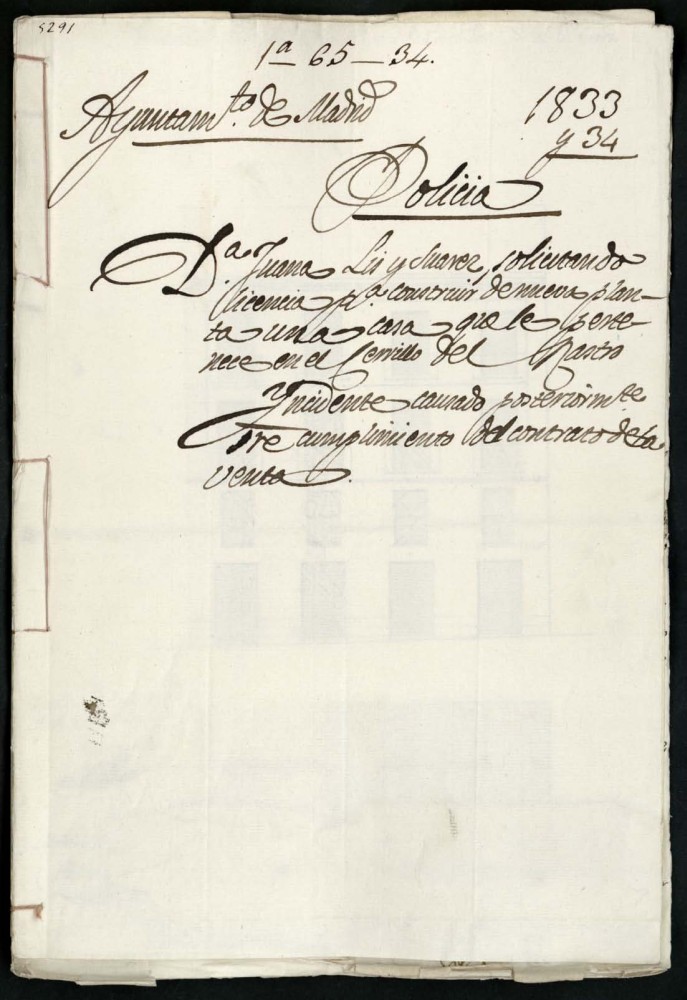 5291
1ª 65-34.
Ayuntamto. de Madrid
1833
y 34
Policia
Dª. Juana Liz y Suarez, solicitando
licencia pª construir de nueva plan-
ta una casa que le perte-
nece en el Cerrillo del Rastro
Yncidente causado posteriormte
sre cumplimiento del contrato de la
venta.